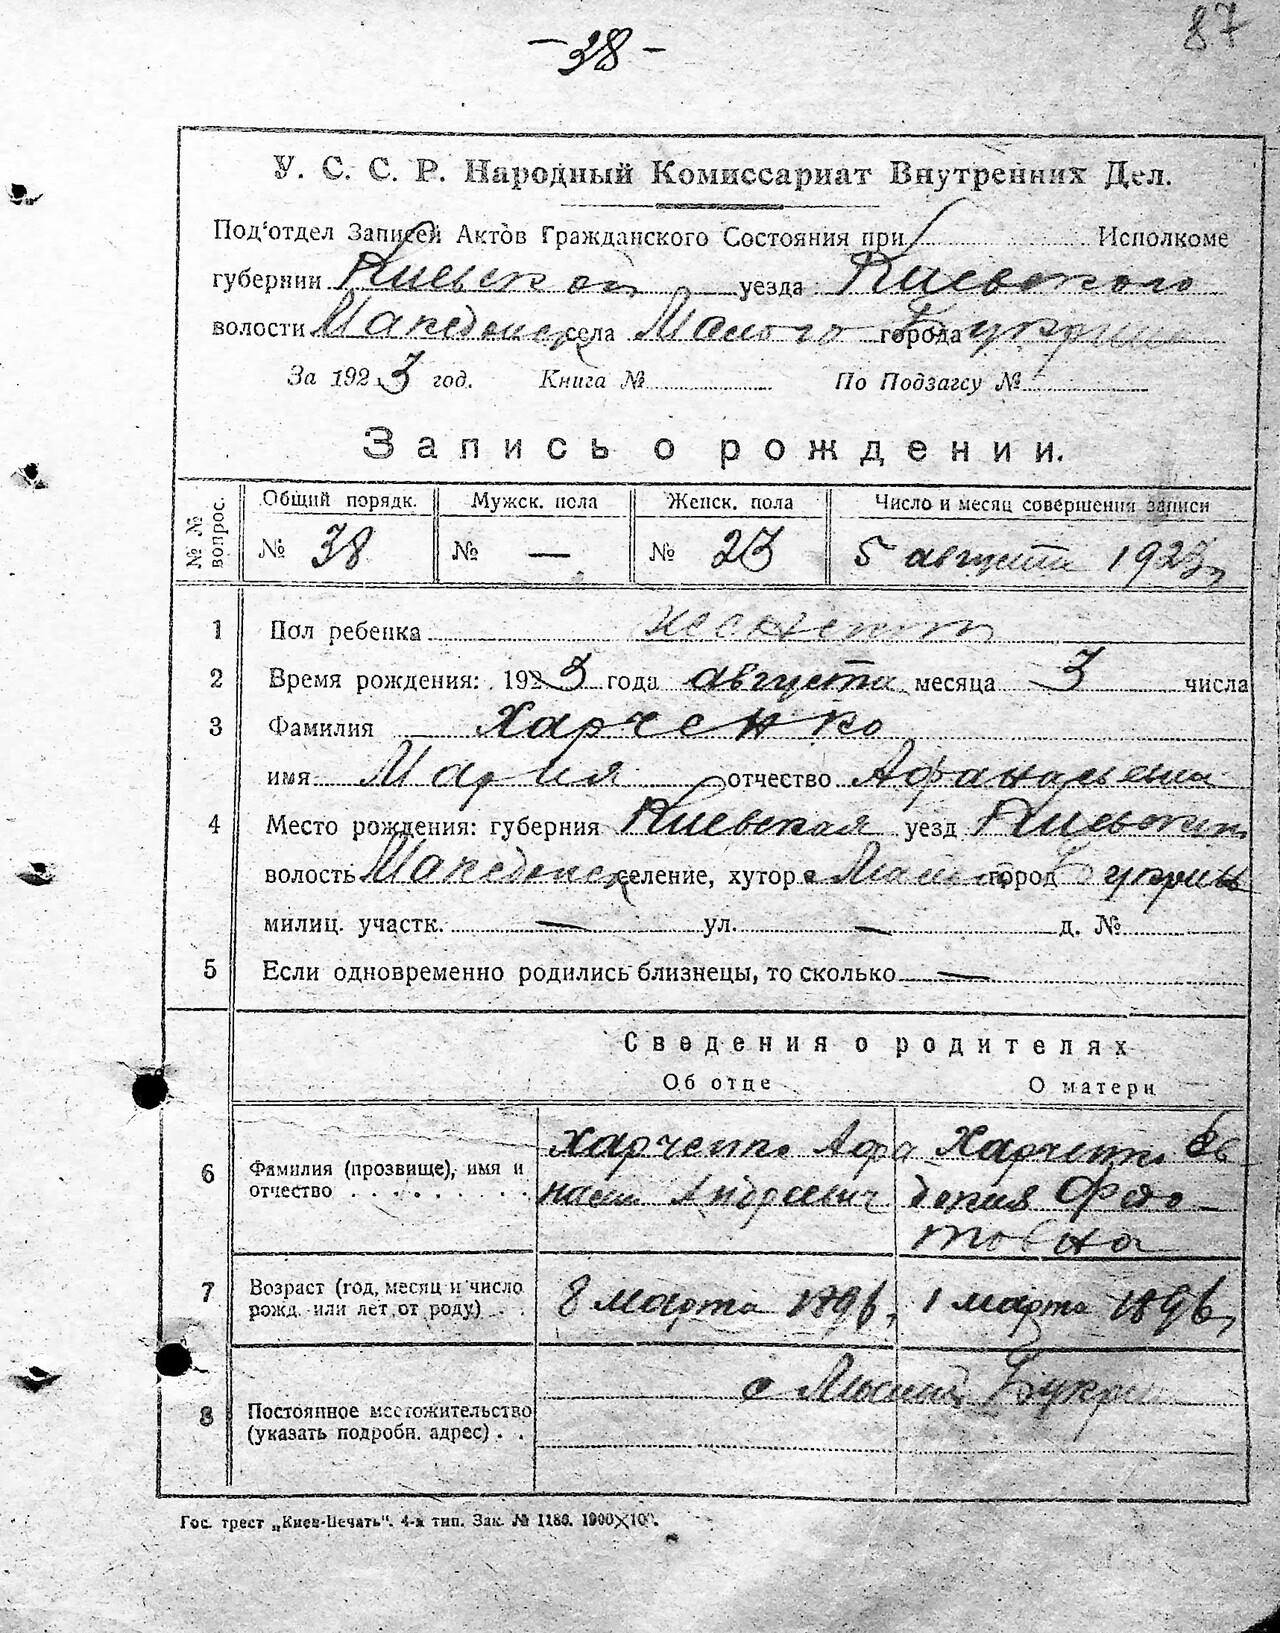 87
- 38 -
У. С. С. Р. Народный Комиссариат Внутренних Дел.
Под'отдел Записей Актов Гражданского Состояния при Исполкоме
губернии Киевской уезда Киевского
волости Македонск села Малого города Букрина
За 1923 год. Книга № По Подзагсу №
Запись о рождении.
№ № вопрос. Общий порядк. Мужск. пола Женск. пола Число и месяц совершения записи
№ 38 № — № 23 5 августа 1923
1 Пол ребенка женский
2 Время рождения: 1923 года августа месяца 3 числа
3 Фамилия Харченко
имя Мария отчество Афанасьевна
4 Место рождения: губерния Киевская уезд Киевский
волость Македонск селение, хутор с Малый город Букрин
милиц. участк. — ул. — д. №
5 Если одновременно родились близнецы, то сколько —
Сведения о родителях
Об отце О матери
Харченко Афа Харченко Ев-
6 Фамилия (прозвище), имя и
отчество . . . . . . . . . насий Андреевич докия Федо-
товна
7 Возраст (год, месяц и число
рожд. или лет от роду) . . 8 марта 1896, 1 марта 1896,
с Малый Букрин
8 Постоянное местожительство
(указать подробн. адрес) . .
Гос. трест „Киев-Печать". 4-я тип. Зак. № 1180. 1000×100.